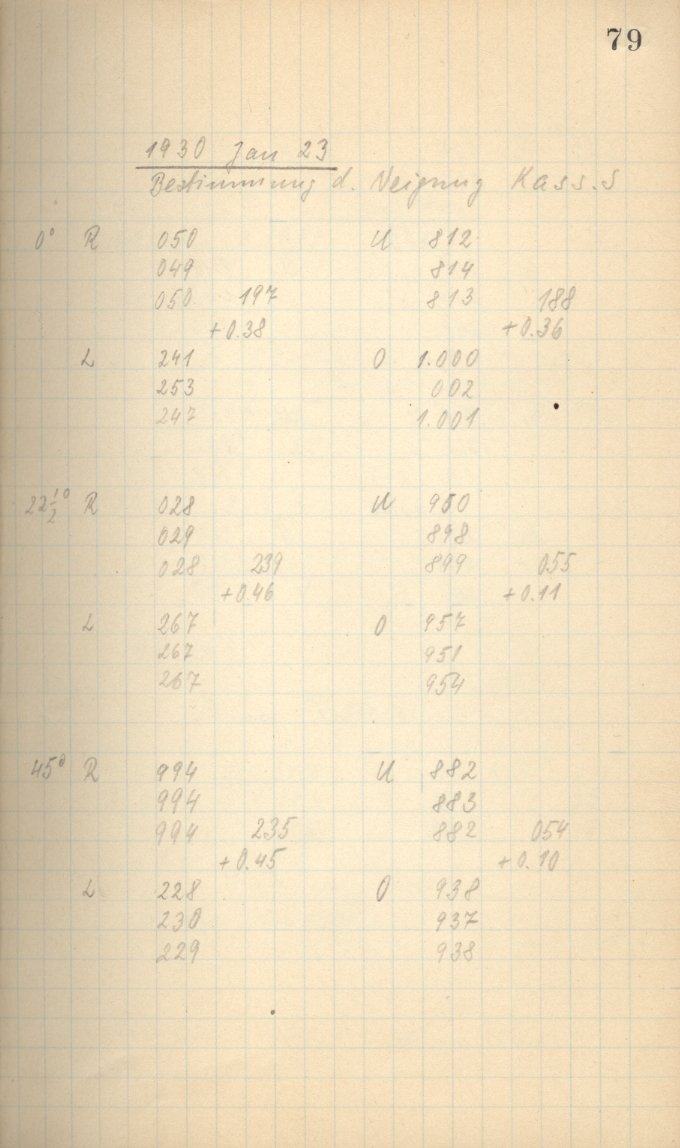 79
1930 Jan 23
Bestimmung d. Neigung Kass.S
0° R 050 U 812
049 814
050 197 813 188
+0.38 +0.36
L 241 O 1.000
253 002
247 1.001
22½° R 028 U 950
029 898
028 239 899 055
+0.46 +0.11
L 267 O 957
267 951
267 954
45° R 994 U 882
994 883
994 235 882 054
+0.45 +0.10
L 228 O 938
230 937
229 938